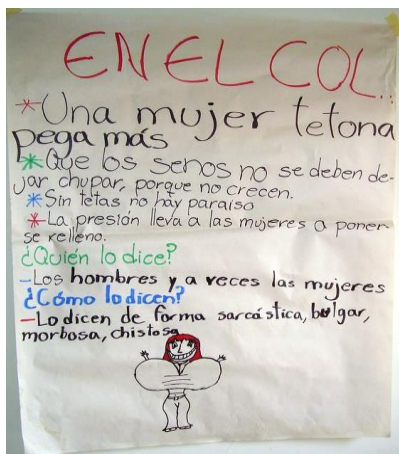 EN EL COL...
*Una mujer tetona
pega más
*Que los senos no se deben de-
jar chupar, porque no crecen.
*Sin tetas no hay paraiso
*La presión lleva a las mujeres a poner-
se relleno.
¿Quién lo dice?
-Los hombres y a veces las mujeres
¿Cómo lo dicen?
-Lo dicen de forma sarcástica, bulgar,
morbosa, chistosa